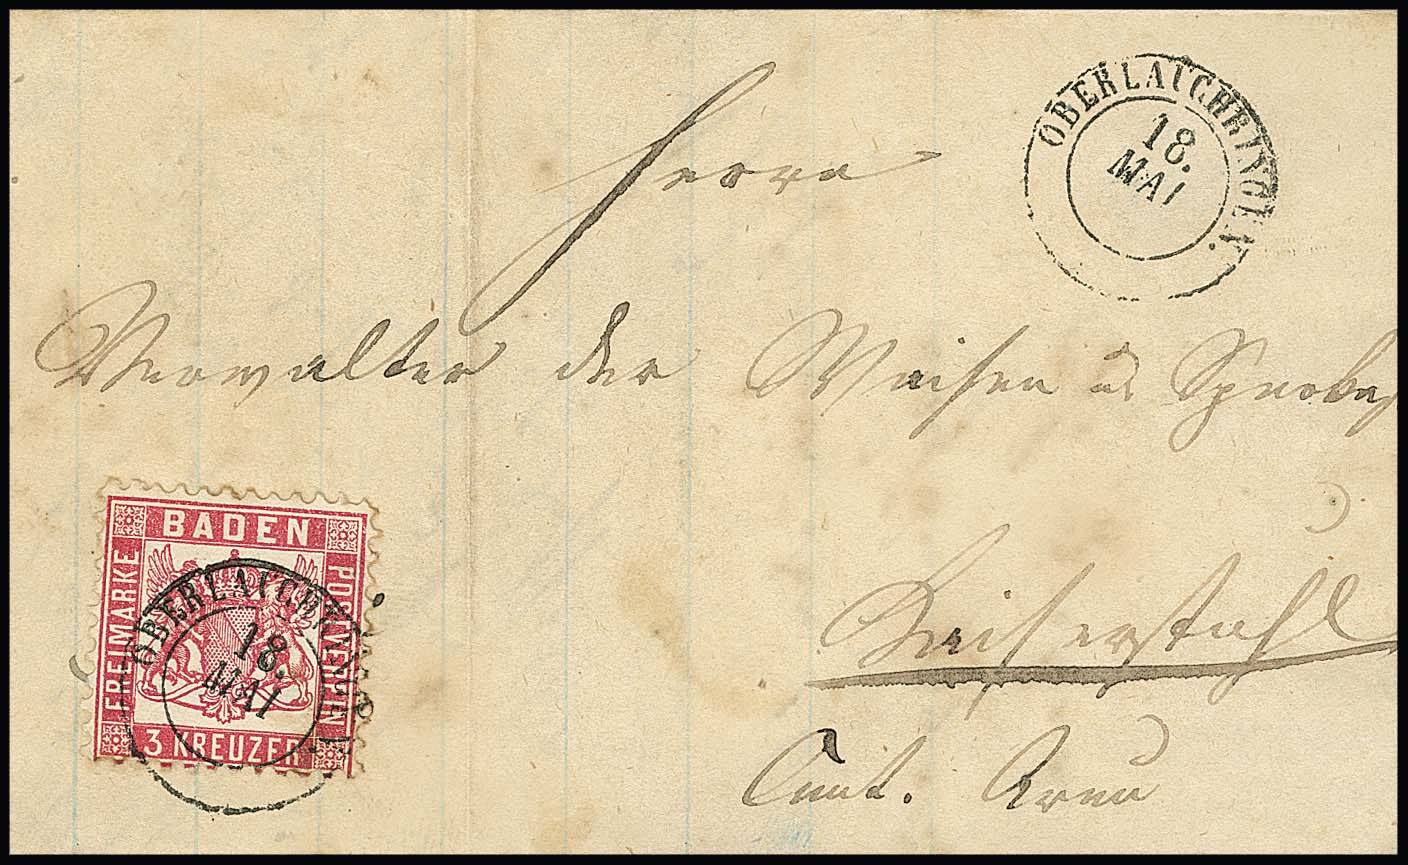 OBERLAUCHRINGEN.
18.
MAI
Herrn
Verwalter der Waisen &
Kaiserstuhl
Cant. Argau
BADEN
FREIMARKE
POSTVEREIN
3 KREUZER
OBERLAUCHRINGEN.
18.
MAI